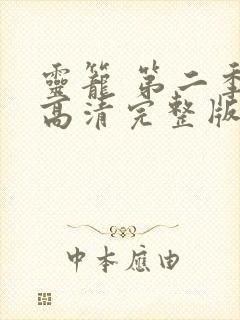 靈籠 第二季
高清完整版
中本應由